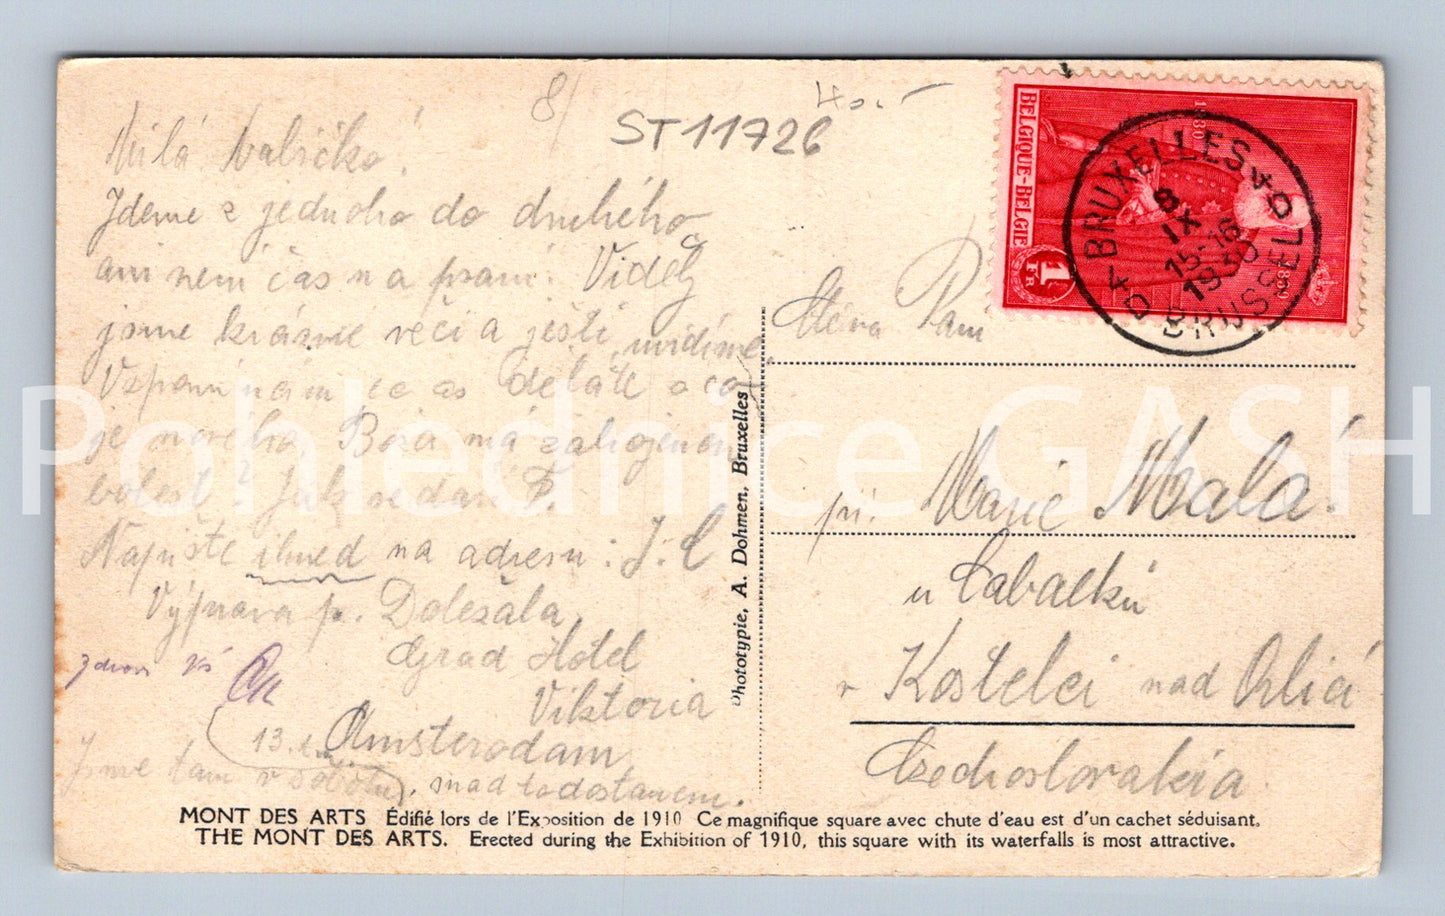 8/
ST11726
40.-
Milá Maličká!
Jdeme z jednoho do druhého
ani není čas na psaní. Viděly
jsme krásné věci a ještě uvidíme.
Vzpomínám co as děláte a co
je nového. má zahojenou
bolest? Jak se daří
Napište ihned na adresu: J. C
Výprava p. Doležala
Grad Hotel
Viktoria
Amsterodam
13.
Zdraví Vás
Jsme tam v sobotu, snad to dostanem.
Phototypie, A. Dohmen, Bruxelles
Paní
Marie Malá
u
v Kostelci nad Orlicí
Czechoslovakia
BELGIQUE-BELGIË
1830
1 FR
BRUXELLES
8
IX
15-16
1930
BRUSSEL
MONT DES ARTS Édifié lors de l'Exposition de 1910 Ce magnifique square avec chute d'eau est d'un cachet séduisant.
THE MONT DES ARTS. Erected during the Exhibition of 1910, this square with its waterfalls is most attractive.
Pohlednice GASH